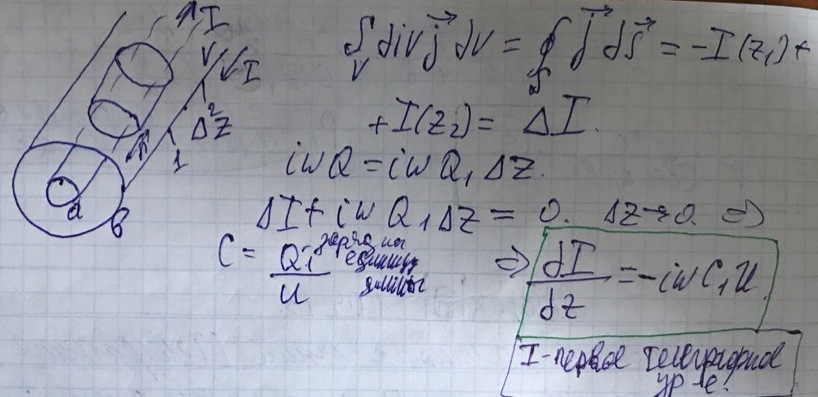 I
I
2
Δz
1
a
b
∫_V div j⃗ dV = ∮_S j⃗ ds⃗ = -I(z₁)+
+I(z₂) = ΔI.
iωQ = iωQ₁Δz.
ΔI + iωQ₁Δz = 0. Δz→0. ⇒
C = Q₁/U заряд на единицу длины
⇒ dI/dz = -iωC₁U.
I-первое телеграфное
ур-е!